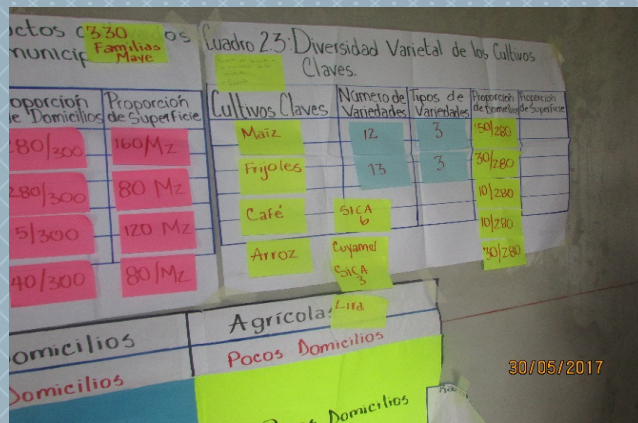 330
Familias
Maye
Proporción
de Superficie
80/300
160/Mz
280/300
80 Mz
5/300
120 Mz
40/300
80/Mz
Cuadro 2.3: Diversidad Varietal de los Cultivos
Claves.
Cultivos Claves
Número de
Variedades
Tipos de
Variedades
Proporción
de Domicilios
Proporción
de Superficie
Maíz
12
3
150/280
Frijoles
13
3
30/280
Café
SICA
6
10/280
10/280
Arroz
Cuyamel
SICA
3
30/280
Lira
omicilios
Agrícola
Domicilios
Pocos Domicilios
Domicilios
30/05/2017